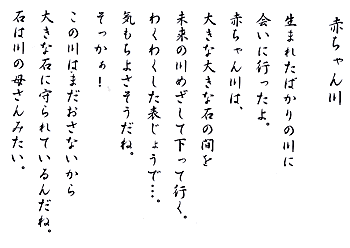 赤ちゃん川
生まれたばかりの川に
会いに行ったよ。
赤ちゃん川は、
大きな大きな石の間を
未来の川めざして下って行く。
わくわくした表じょうで…。
気もちよさそうだね。
そっかぁ！
この川はまだおさないから
大きな石に守られているんだね。
石は川の母さんみたい。